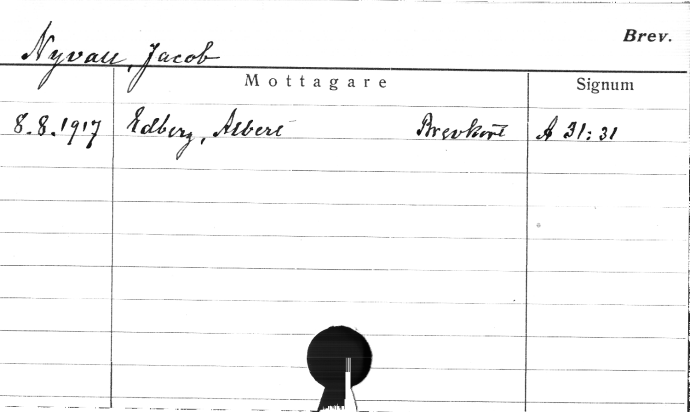 Brev.
Nyvall, Jacob
Mottagare Signum
8.8.1917 Edberg, Albert Brevkort A 31:31